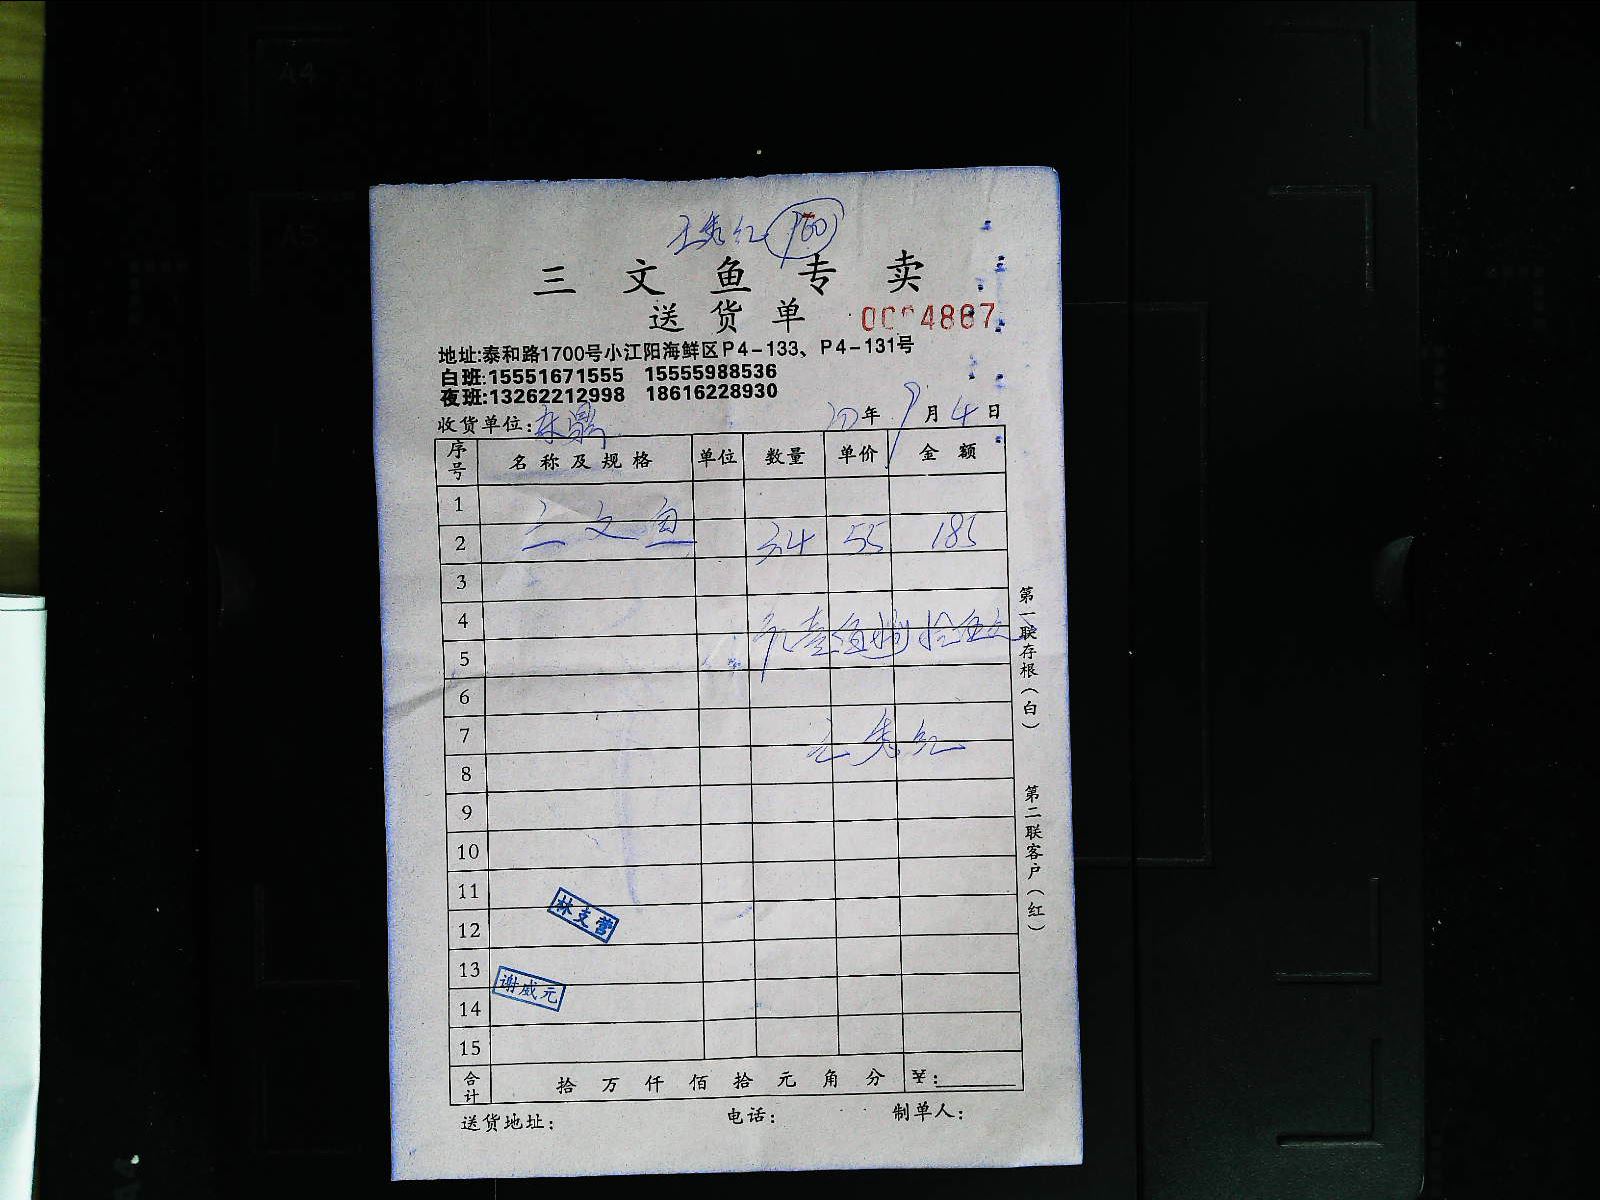 王秀红 160
三文鱼专卖
送货单 0004867
地址:泰和路1700号小江阳海鲜区P4-133、P4-131号
白班:15551671555 15555988536
夜班:13262212998 18616228930
收货单位: 年 9月4日
序号 名称及规格 单位 数量 单价 金额
1
2 三文鱼 34 55 185
3
4
5
6
7
王秀红
8
9
10
11
12
林支营
13
谢威元
14
15
合计 拾万仟佰拾元角分 ¥:
送货地址: 电话: 制单人:
第一联存根(白)
第二联客户(红)
A4
A5